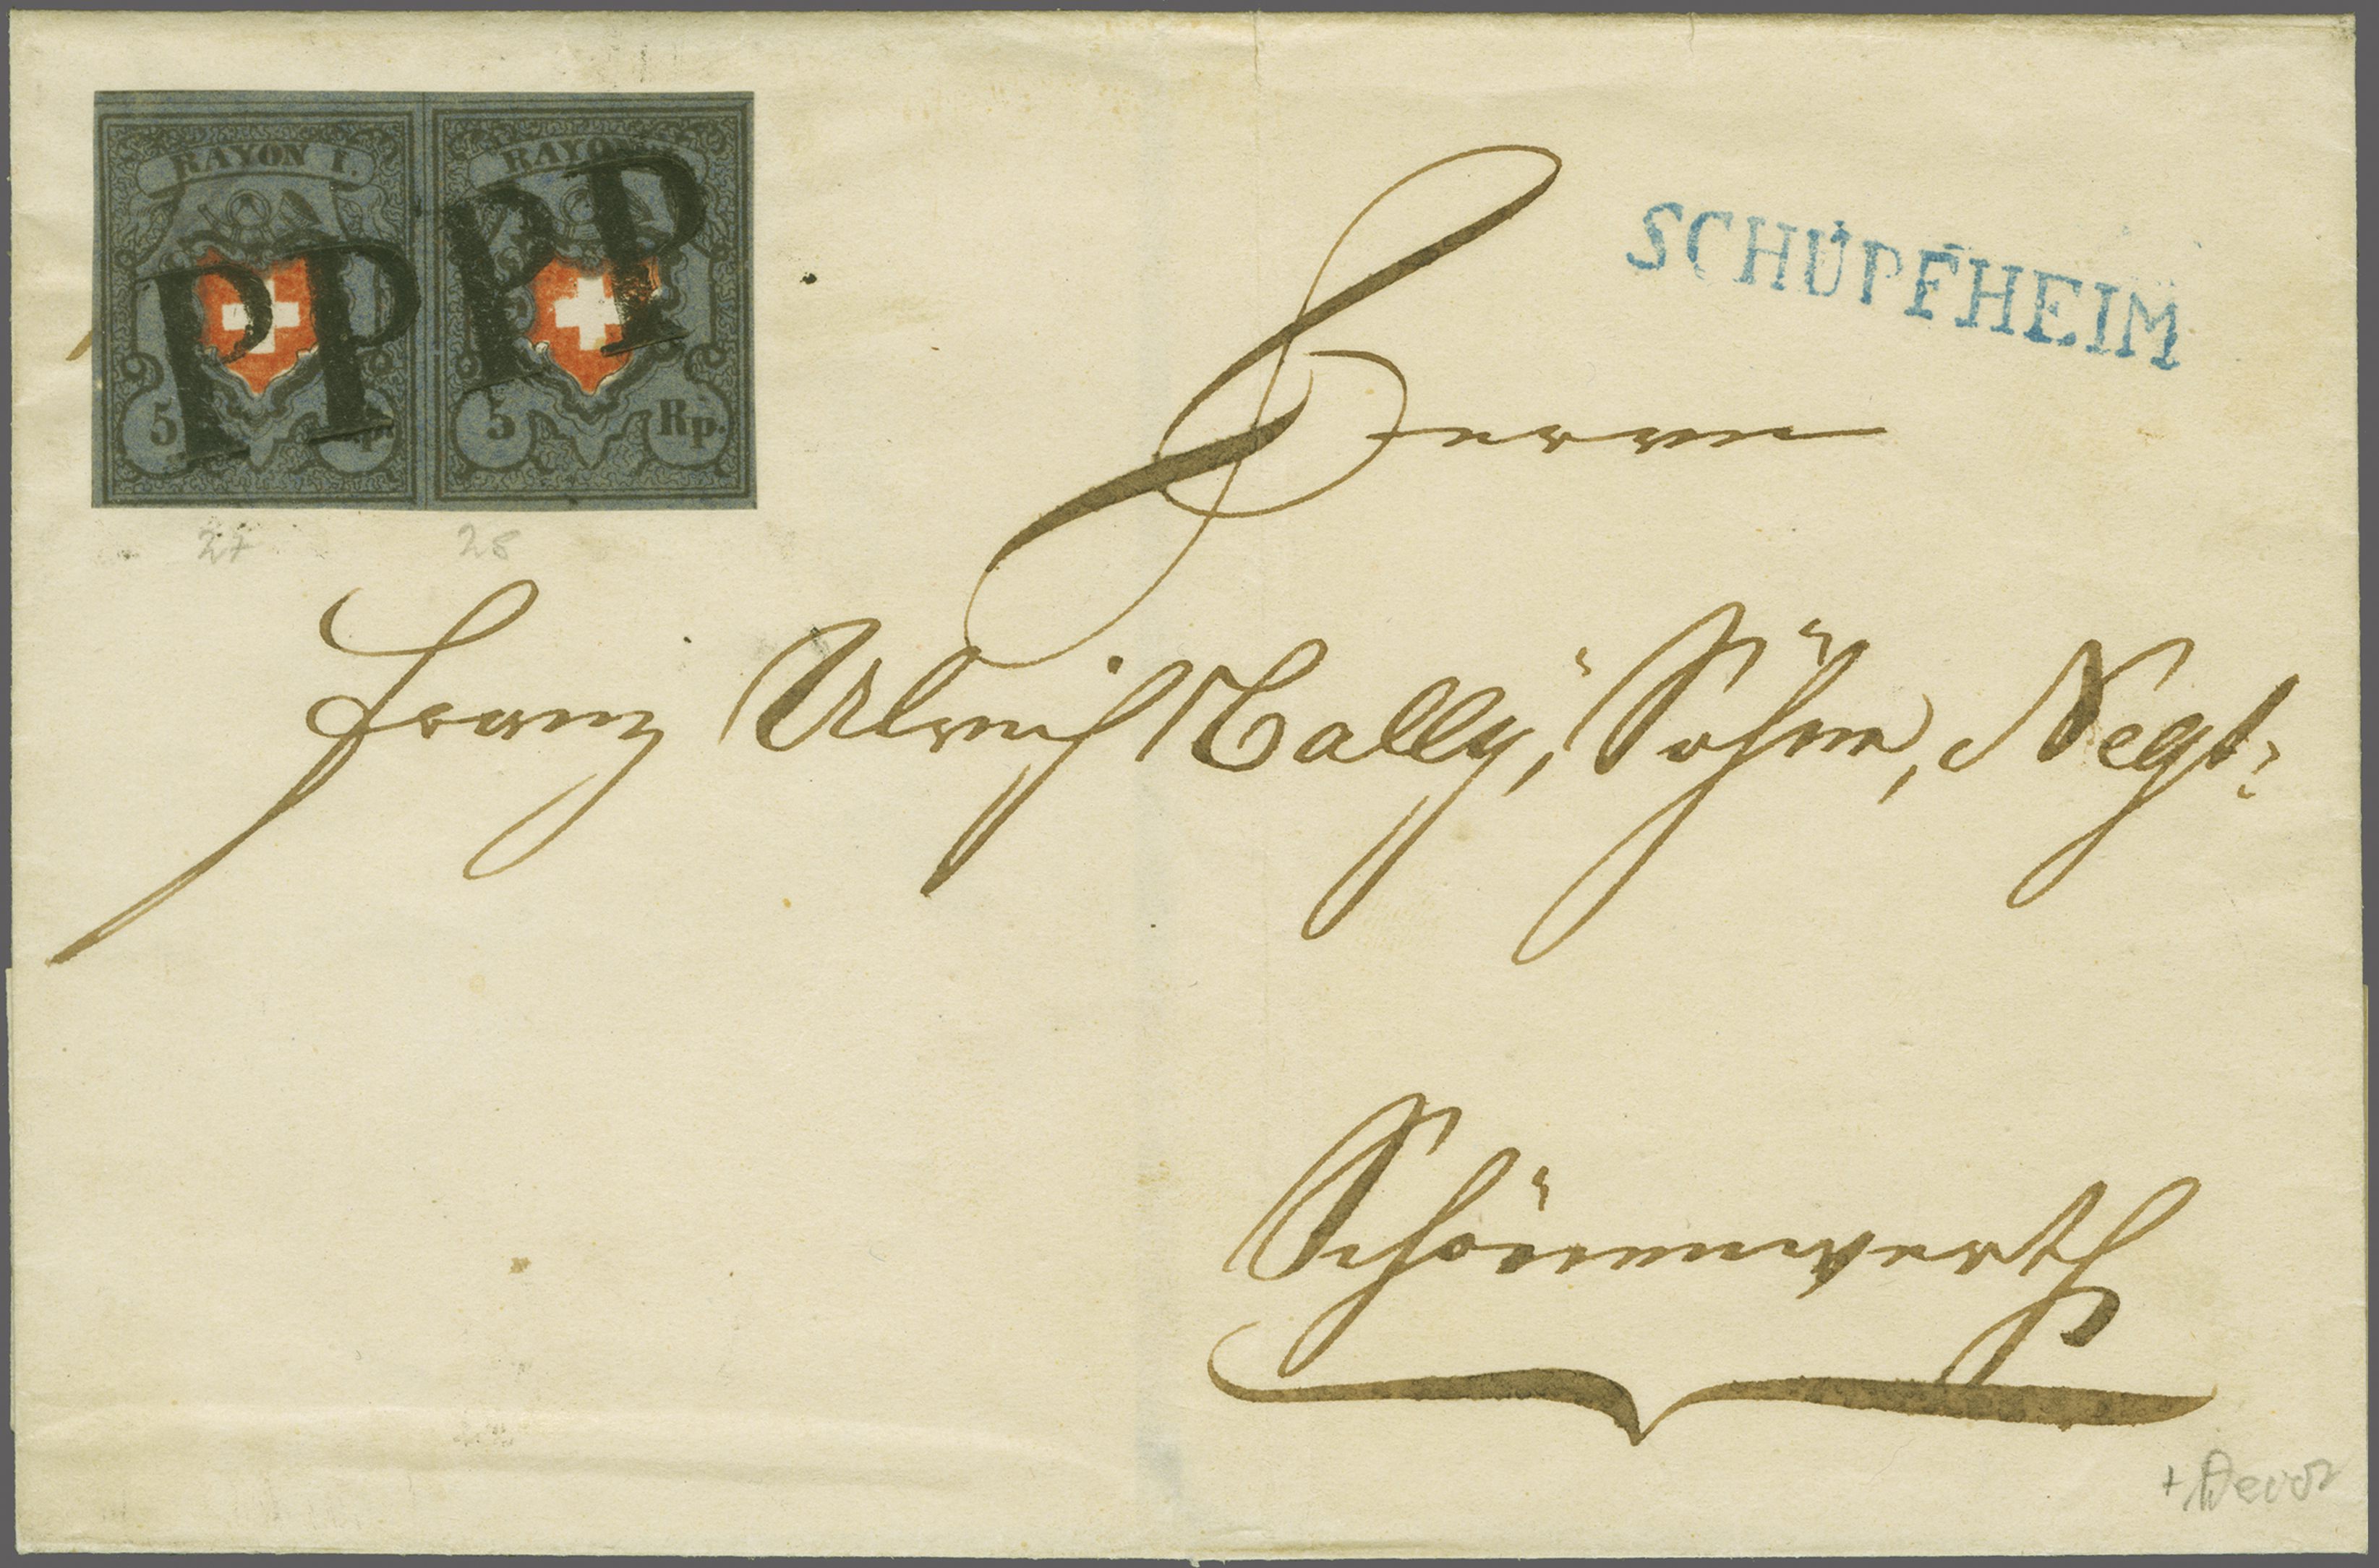 RAYON I. RAYON
PP PP
5 Rp. 5 Rp.
27 28
SCHÜPFHEIM
Herrn
Franz Ulrich Bally, Söhne, Negt:
Schönenwerth